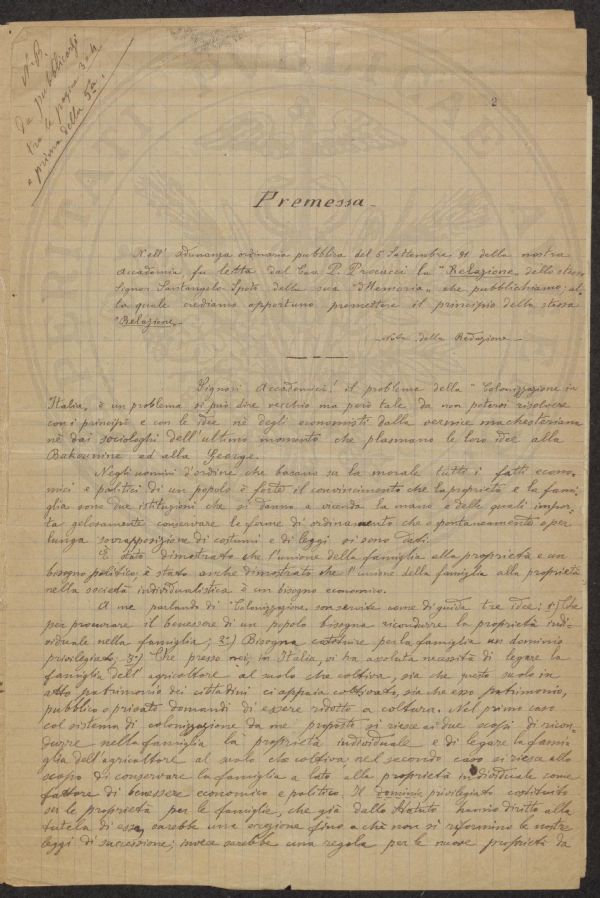 N.B.
Da pubblicarsi
tra le pagine 3 e 4
e prima della 5ª.
2
Premessa
Nell' Adunanza ordinaria pubblica del 5 Settembre 91 della nostra
Accademia fu letta dal Cav. P. Procacci la "Relazione" dello stesso
Signor Santangelo Spoto della sua "Memoria" che pubblichiamo, al-
la quale crediamo opportuno premettere il principio della stessa
"Relazione"
Nota della Redazione
Signori Accademici! il problema della "Colonizzazione in
Italia" è un problema si può dire vecchio ma però tale da non potersi risolvere
con i principi e con le idee nè degli economisti dalla vernice machesteriana
nè dai sociologhi dell'ultimo momento che plasmano le loro idee alla
Bakounine ed alla George.
Negli uomini d'ordine che basano su la morale tutti i fatti econo-
mici e politici di un popolo è forte il convincimento che la proprietà e la fami-
glia sono due istituzioni che si danno a vicenda la mano e delle quali impor-
ta gelosamente conservare le forme di ordinamento che o spontaneamente o per
lunga sovrapposizione di costumi e di leggi si sono dati.
È stato dimostrato che l'unione della famiglia alla proprietà è un
bisogno politico, è stato anche dimostrato che l'unione della famiglia alla proprietà
nella società individualistica è un bisogno economico.
A me parlando di Colonizzazione, son servite come di guida tre idee: 1º) Che
per procurare il benessere di un popolo bisogna ricondurre la proprietà indi-
viduale nella famiglia; 2º) Bisogna costituire per la famiglia un dominio
privilegiato; 3º) Che presso noi, in Italia, vi ha assoluta necessità di legare la
famiglia dell' agricoltore al suolo che coltiva, sia che questo suolo in
atto patrimonio dei cittadini ci appaia coltivato, sia che esso patrimonio,
pubblico o privato domandi di essere ridotto a coltura. Nel primo caso
col sistema di colonizzazione da me proposto si riesce ai due scopi di ricon-
durre nella famiglia la proprietà individuale e di legare la fami-
glia dell'agricoltore al suolo che coltiva; nel secondo caso si riesce allo
scopo di conservare la famiglia a lato alla proprietà individuale come
fattore di benessere economico e politico. Il dominio privilegiato costituito
per le proprietà per le famiglie, che già dallo Statuto hanno diritto alla
tutela di essa, sarebbe una eccezione fino a che non si riformino le nostre
leggi di successione; invece sarebbe una regola per le nuove proprietà da